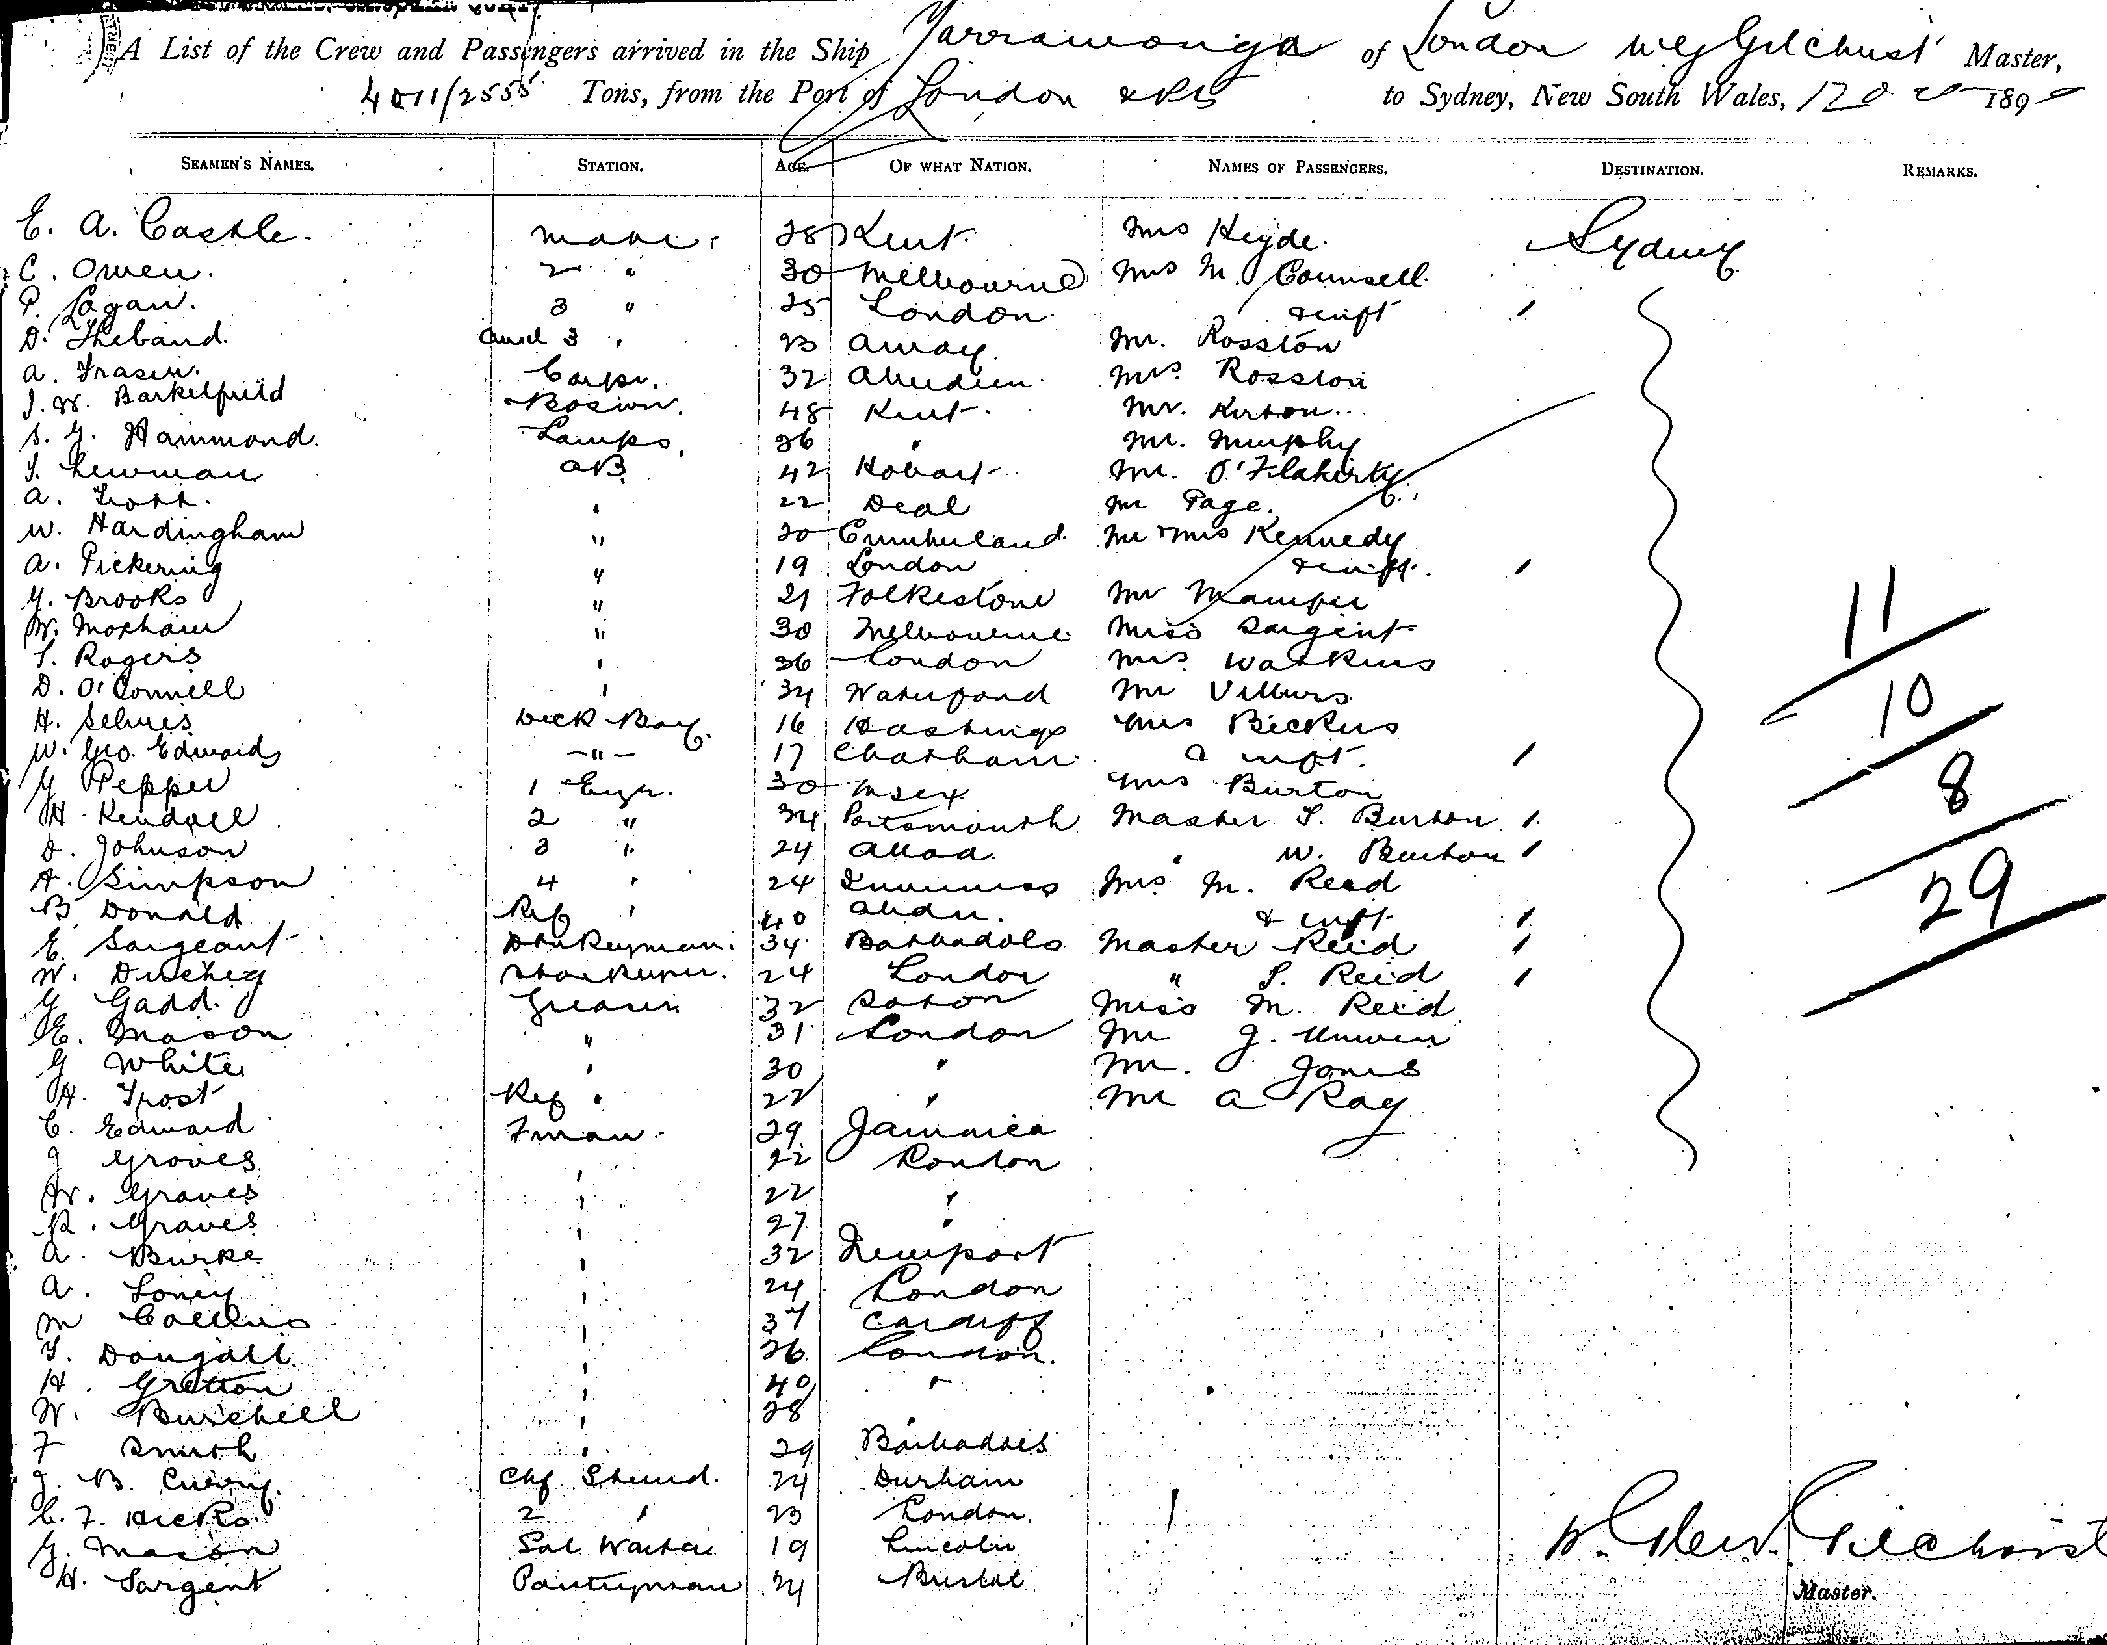 A List of the Crew and Passengers arrived in the Ship Yarrawonga of London W G Gilchrist Master,
4011/2555 Tons, from the Port of London & Pts to Sydney, New South Wales, 12 189
SEAMEN'S NAMES. STATION. AGE. OF WHAT NATION. NAMES OF PASSENGERS. DESTINATION. REMARKS.
E. A. Castle. Mate. 28 Kent. Mrs Heyde. Sydney
C. Owen. 2 " 30 Melbourne Mrs M Counsell
P. Logan. 3 " 25 London & inft 1
D. Theband. 3 " 23 Mr. Rosston
A. Fraser. Carpr. 32 Aberdeen Mrs. Rosston
J. W. Barkelfield Bosiwn. 48 Kent. Mr. Kirton
S. G. Hammond. Lamps. 36 " Mr. Murphy
T. Newman AB 42 Hobart Mr. O'Flaherty
A. Trott. " 22 Deal Mr Page.
W. Hardingham " 20 Cumberland Mr & Mrs Kennedy
A. Pickering " 19 London & inft. 1
G. Brooks " 21 Folkestone Mr
W. Moxham " 30 Melbourne Miss Sargent
T. Rogers " 36 London Mrs. Watkins
D. O'Connell " 34 Waterford Mr Villiers
H. Selmes Deck Boy. 16 Hastings Mrs Bickers
W. Geo. Edwards " 17 Chatham & inft. 1
G Pepper 1 Engr. 30 Essex Mrs Burton
H. Kendall 2 " 34 Portsmouth Master T. Burton 1
D. Johnson 3 " 24 Alloa. " W. Burton 1
A. Simpson 4 " 24 Inverness Mrs M. Reed
B Donald Ref " 40 Abdn. & inft 1
E. Sargeant Donkeyman. 34 Barbadoes Master Reid 1
W. Storekeeper. 24 London " S. Reid 1
G Gadd. Greaser 32 Miss M. Reid
E. Mason " 31 London Mr J. Unwin
G White " 30 " Mr. Jones
H. Frost Ref " 22 " Mr A Ray
C. Edward Fman. 29 Jamaica
J Groves " 22 London
W. Graves " 22 "
R. Graves " 27 "
A. Burke " 32 Newport
A. Loney " 24 London
M Collins " 37 Cardiff
T. Dougall " 26 London.
H. Gretton " 40 "
W. Burchell " 28 "
F Smith " 29 Barbadoes
J. B. Curry. Chf Steward. 24 Durham
C. F. Hicks 2 " 23 London.
G. Mason Sal Waiter 19 Lincoln
H. Sargent Pantryman 24 Bristol
11
10
8
29
W. Glen. Gilchrist
Master.